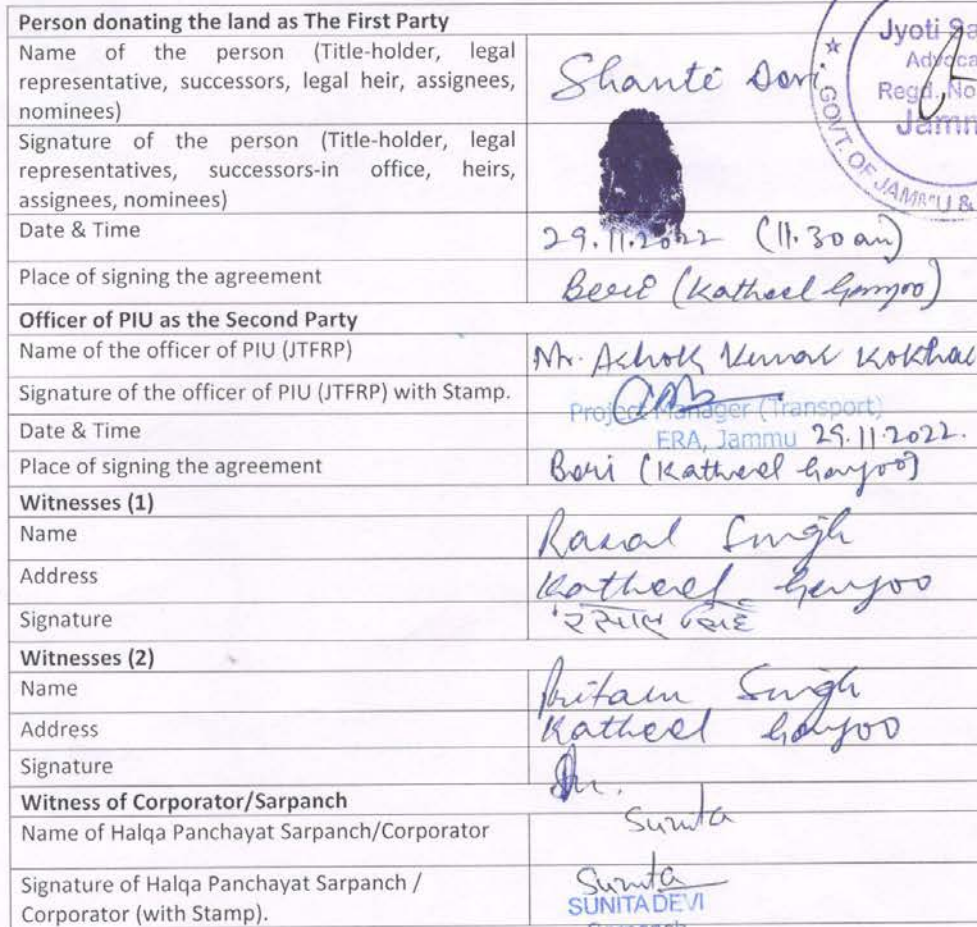 Person donating the land as The First Party
Name of the person (Title-holder, legal
representative, successors, legal heir, assignees,
nominees)
Shanti Devi
Signature of the person (Title-holder, legal
representatives, successors-in office, heirs,
assignees, nominees)
Date & Time
29.11.2022 (11.30 am)
Place of signing the agreement
Beri (Katheel
Officer of PIU as the Second Party
Name of the officer of PIU (JTFRP)
Mr. Ashok Kumar
Signature of the officer of PIU (JTFRP) with Stamp.
Project Manager (Transport)
ERA, Jammu
Date & Time
29.11.2022.
Place of signing the agreement
Beri (Katheel
Witnesses (1)
Name
Rasal Singh
Address
Katheel
Signature
Witnesses (2)
Name
Pritam Singh
Address
Katheel
Signature
Witness of Corporator/Sarpanch
Name of Halqa Panchayat Sarpanch/Corporator
Sunita
Signature of Halqa Panchayat Sarpanch /
Corporator (with Stamp).
Sunita
SUNITA DEVI
Jyoti
Regd. No
GOVT. OF JAMMU &